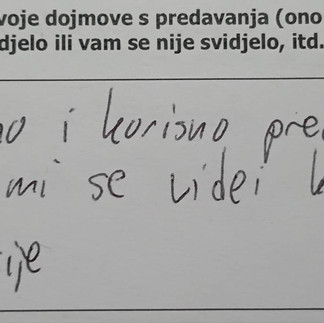 voje dojmove s predavanja (ono
djelo ili vam se nije svidjelo, itd.
no i korisno pre
mi se videi
ije